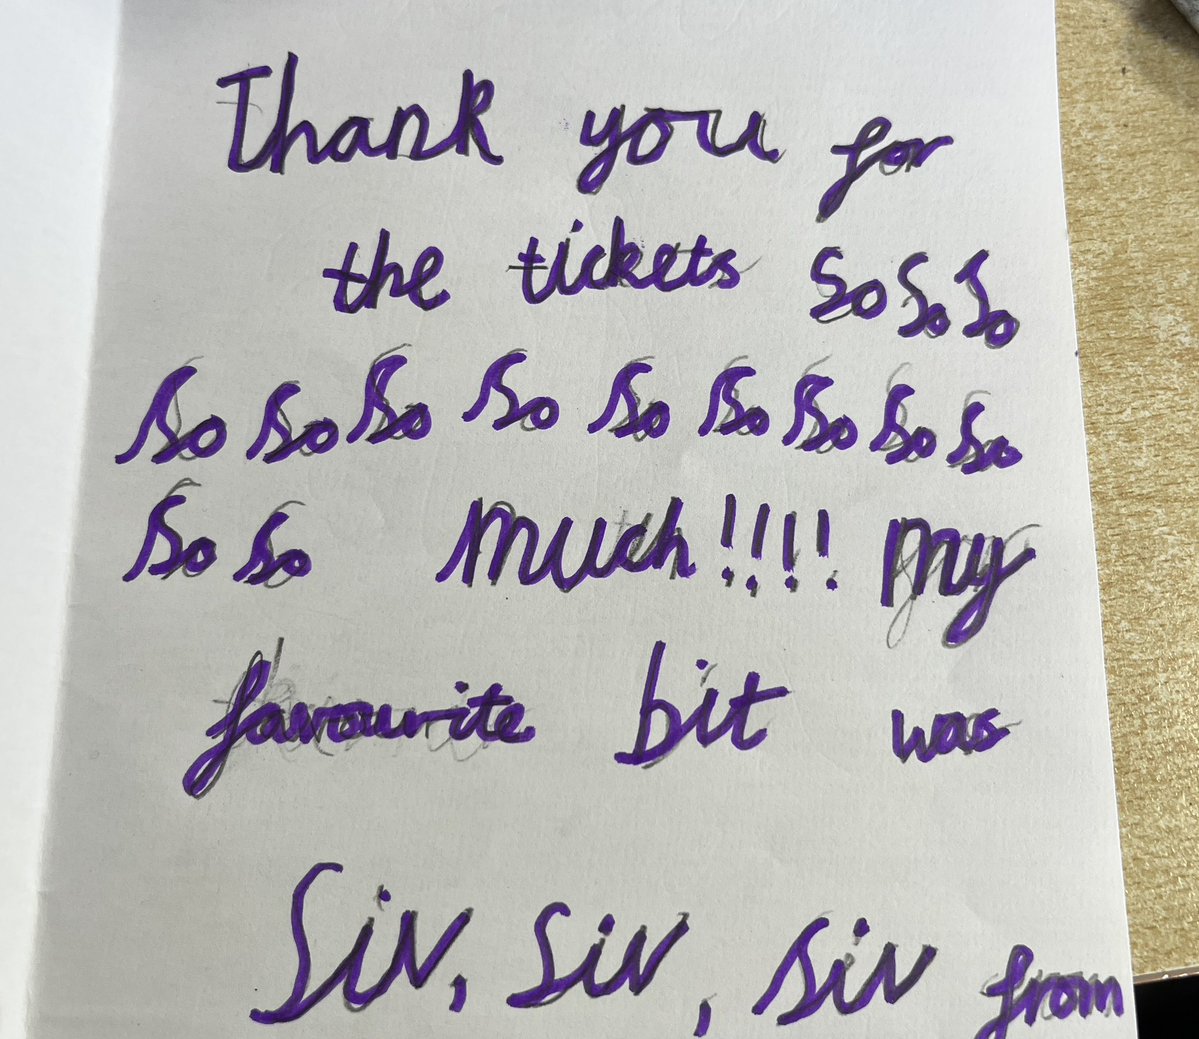 Thank you for
the tickets So So So
So So So So So So So So So
So So much!!!! My
favourite bit was
Siv, Siv, Siv from